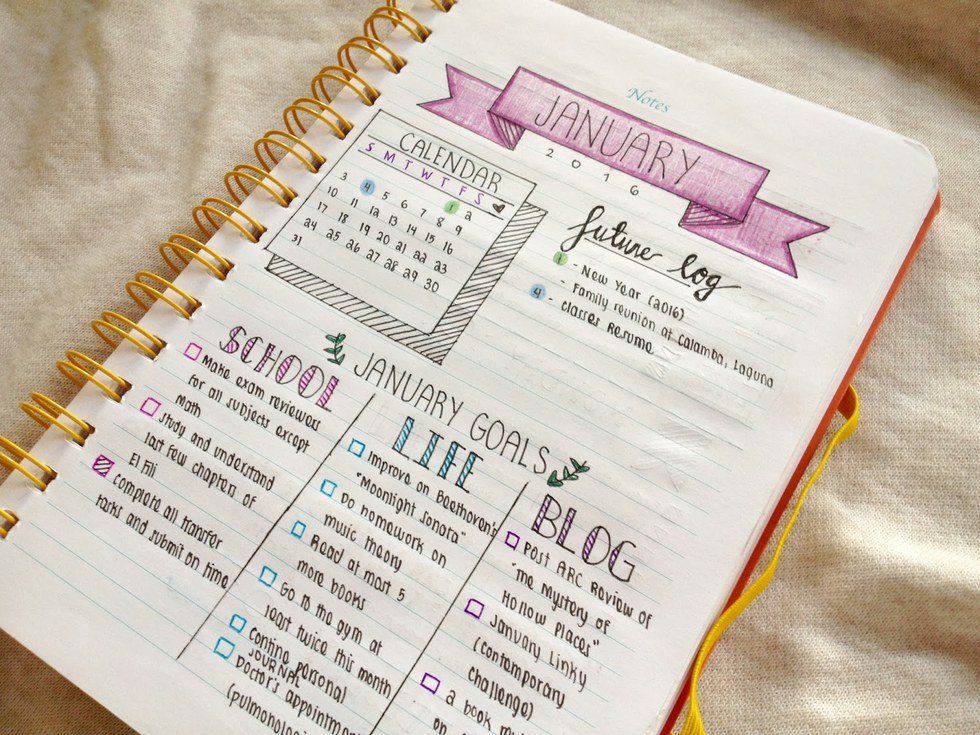 Notes
JANUARY
2016
CALENDAR
S M T W T F S
1 2
3 4 5 6 7 8 9
10 11 12 13 14 15 16
17 18 19 20 21 22 23
24 25 26 27 28 29 30
31
future log
1 - New Year (2016)
- Family reunion at Calamba, Laguna
4 - Classes Resume
JANUARY GOALS
SCHOOL
Make exam reviewers
for all subjects except
math
Study and understand
last few chapters of
El Fili
Complete all transfer
tasks and submit on time
LIFE
Improve on Beethoven's
"Moonlight Sonata"
Do homework on
music theory
Read at most 5
more books
Go to the gym at
least twice this month
Continue personal
JOURNAL
Doctor's appointment
BLOG
Post ARC Review of
"The Mystery of
Hollow Places"
January Linky
(contemporary
challenge)
a book
on